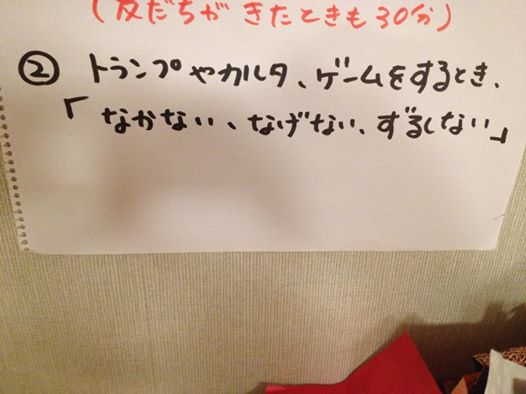 (友だちがきたときも30分)
② トランプやカルタ、ゲームをするとき、
「なかない、なげない、ずるしない」